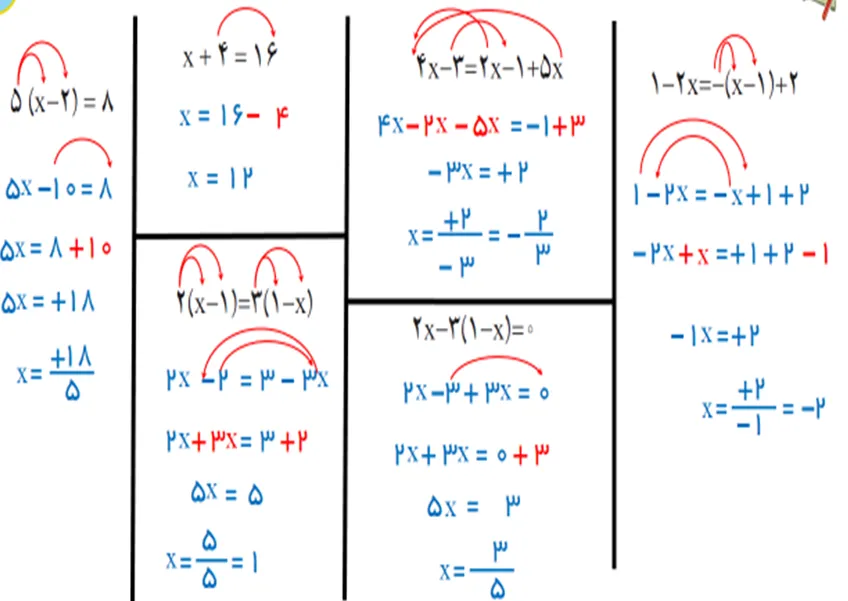 ۵ (x−۲) = ۸
۵x −۱۰ = ۸
۵x = ۸ +۱۰
۵x = +۱۸
x= +۱۸/۵
x + ۴ = ۱۶
x = ۱۶− ۴
x = ۱۲
۲(x−۱)=۳(۱−x)
۲x −۲ = ۳ − ۳x
۲x+۳x= ۳ +۲
۵x = ۵
x= ۵/۵ = ۱
۴x−۳=۲x−۱+۵x
۴x−۲x − ۵x = −۱+۳
−۳x = +۲
x= +۲/−۳ = − ۲/۳
۲x−۳(۱−x)=۰
۲x−۳+ ۳x = ۰
۲x+ ۳x = ۰ + ۳
۵x = ۳
x= ۳/۵
۱−۲x=−(x−۱)+۲
۱ −۲x = −x+۱ +۲
−۲x+x =+۱ +۲ −۱
−۱x =+۲
x= +۲/−۱ = −۲